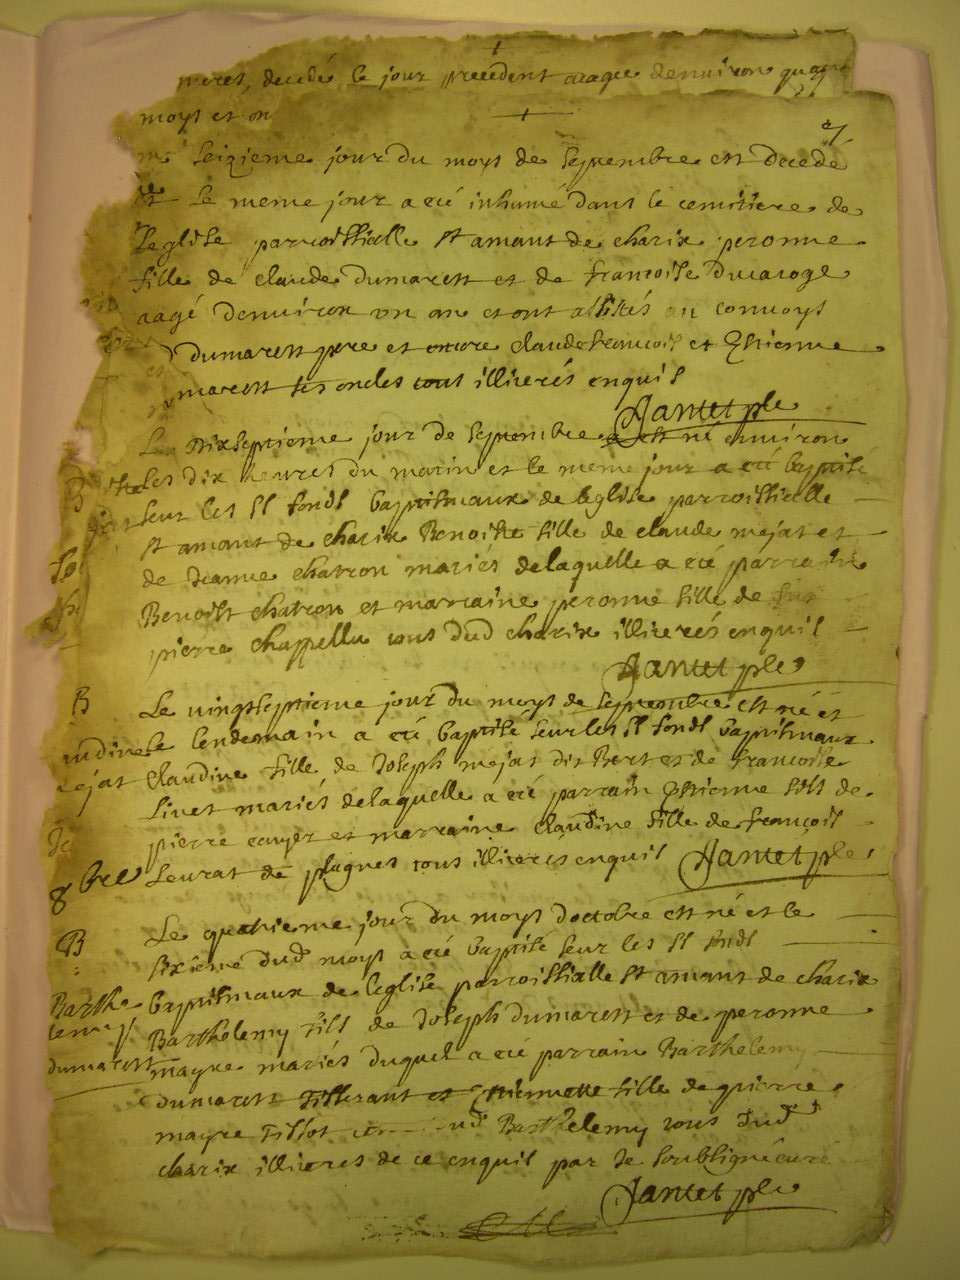 decedé le jour precedent aagee denuiron
moys et on
7
seizieme jour du moys de septembre est decedé
et le meme jour a eté inhumé dans le cemitiere de
leglise parroissialle st amant de charix peronne
fille de claude dumarest et de francoise ducaroge
aagé denuiron vn an et ont assistés au conuoys
dumarest pere et encore claude francois et Estienne
marest ses oncles tous illiterés enquis
Jantet ptre
Le dixseptieme jour de septembre est né enuiron
les dix heures du matin et le meme jour a eté baptisé
seur les st fonds baptismaux de leglise parroissialle
st amant de charix Benoiste fille de claude mejat et
de Jeanne chatron mariés de laquelle a eté parrain
Benoist chatron et marraine peronne fille de
pierre chappellu tous dud charix illiterés enquis
Jantet ptre
B
Le vingtseptieme jour du moys de septembre est né et
udine le lendemain a eté baptisé seur les st fonds baptismaux
ejat claudine fille de Joseph mejat dit Bert et de francoise
Liuet mariés de laquelle a eté parrain Estienne fils de
pierre et marraine claudine fille de francois
8bre
Seurat de plagnes tous illiterés enquis Jantet ptre
Le quatrieme jour du moys doctobre est né et le
B
sixieme dud moys a eté baptisé seur les st fonds
Barthe baptismaux de leglise parroissialle st amant de charix
lemy Barthelemy fils de Joseph dumarest et de peronne
dumarest mayre mariés duquel a eté parrain Barthelemy
dumarest tisserant et Estiennette fille de pierre
mayre tissot Barthelemy tous dud
charix illiteres de ce enquis par le soubsigné curé
Jantet ptre